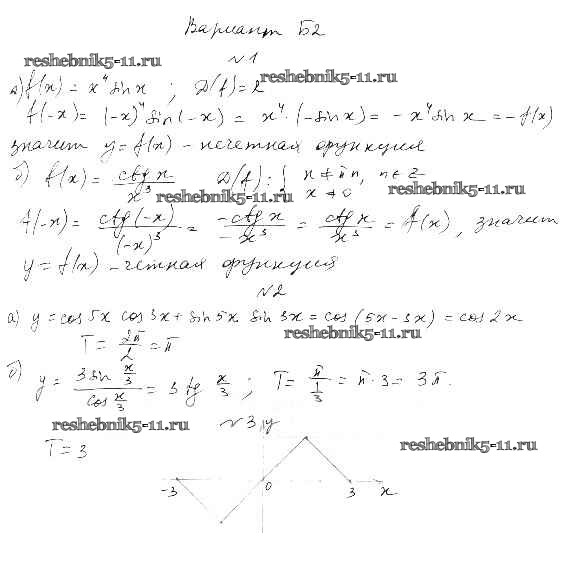 Вариант Б2
№1
reshebnik5-11.ru
а) f(x) = x⁴ sin x ; D(f) = R
reshebnik5-11.ru
f(-x) = (-x)⁴ sin(-x) = x⁴·(-sin x) = -x⁴ sin x = -f(x)
значит y = f(x) - нечетная функция
б) f(x) = ctg x / x³ D(f): { x ≠ πn, n ∈ Z
x ≠ 0
reshebnik5-11.ru
reshebnik5-11.ru
f(-x) = ctg(-x) / (-x)³ = -ctg x / -x³ = ctg x / x³ = f(x), значит
y = f(x) - четная функция
№2
а) y = cos 5x cos 3x + sin 5x sin 3x = cos(5x - 3x) = cos 2x
reshebnik5-11.ru
T = 2π/2 = π
б) y = 3 sin x/3 / cos x/3 = 3 tg x/3 ; T = π / 1/3 = π·3 = 3π.
reshebnik5-11.ru
№3 y
reshebnik5-11.ru
T = 3
-3 0 3 x